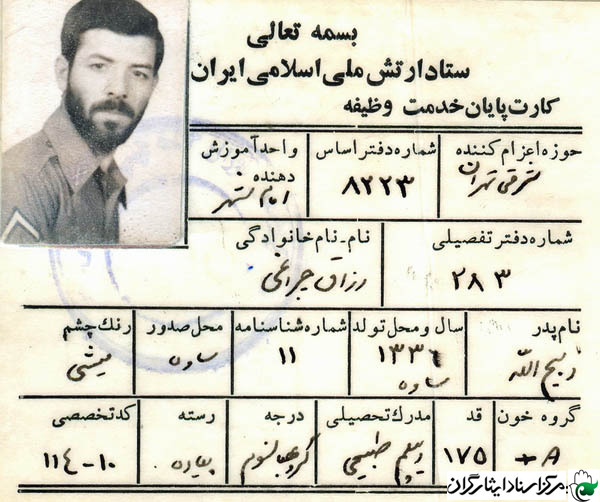 بسمه تعالی
ستاد ارتش ملی اسلامی ایران
کارت پایان خدمت وظیفه
حوزه اعزام کننده شماره دفتر اساس واحد آموزش دهنده
شرقی تهران ۸۲۲۳
شماره دفتر تفصیلی نام ـ نام خانوادگی
۲۸۳ رزاق چراغی
نام پدر سال و محل تولد شماره شناسنامه محل صدور رنگ چشم
ذبیح الله ۱۳۳۶ ساوه ۱۱ ساوه میشی
گروه خون قد مدرک تحصیلی درجه رسته کد تخصصی
A+ ۱۷۵ دیپلم طبیعی گروهبان سوم پیاده ۱۱۴-۱۰
مرکز اسناد ایثارگران